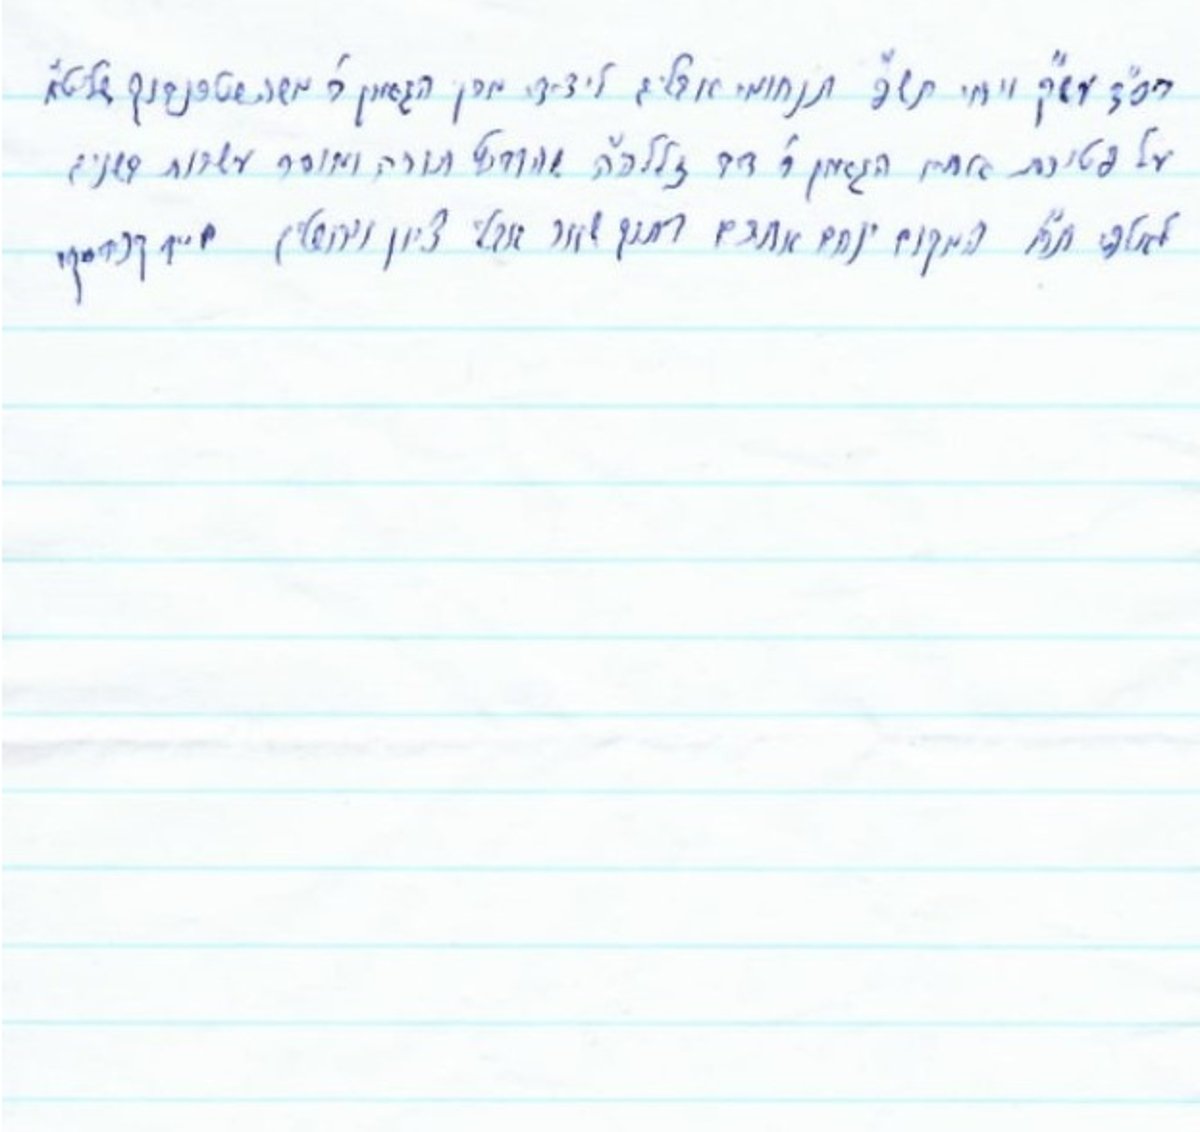 בס"ד עש"ק ויחי תש"פ תנחומי אבלים לידידי מרן הגאון ר' משה שטרנבוך שליט"א
על פטירת אחיו הגאון ר' דוד זללה"ה שהרביץ תורה ומוסר עשרות בשנים
לאלפי תו"ח המקום ינחם אתכם בתוך שאר אבלי ציון וירושלים חיים קניבסקי